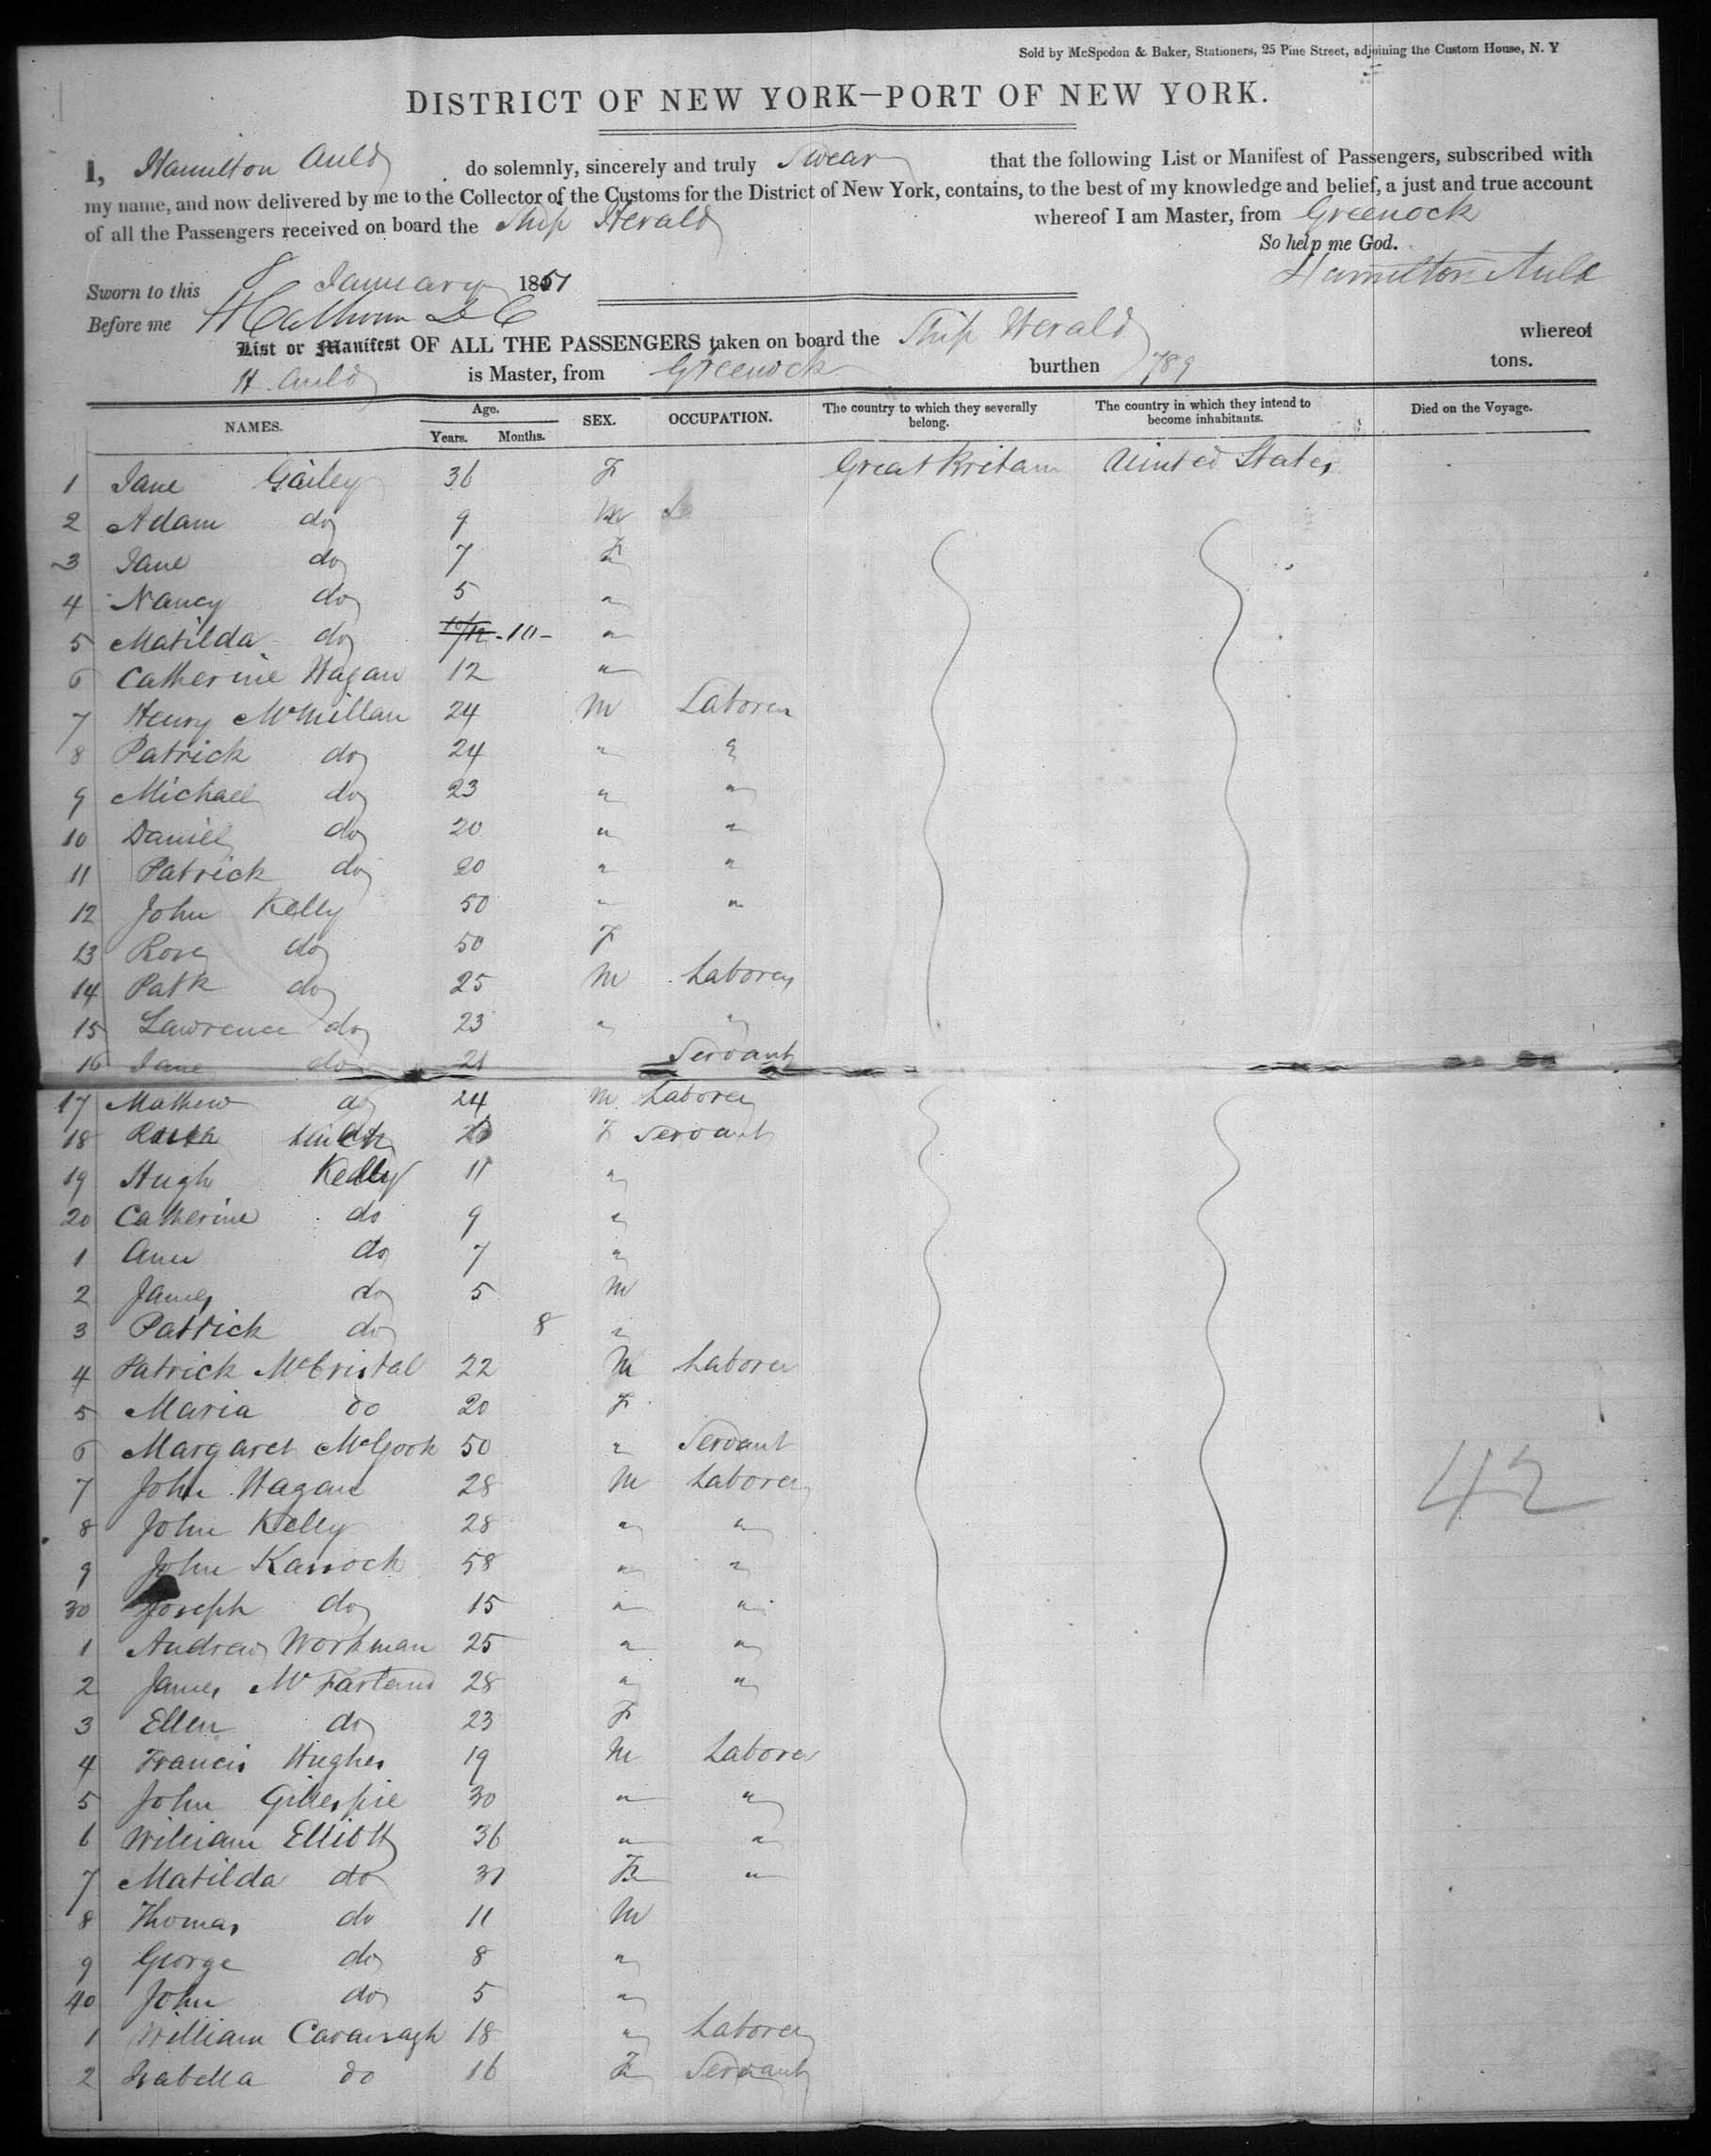 Sold by McSpedon & Baker, Stationers, 25 Pine Street, adjoining the Custom House, N. Y
DISTRICT OF NEW YORK—PORT OF NEW YORK.
I, Hamilton Auld do solemnly, sincerely and truly Swear that the following List or Manifest of Passengers, subscribed with
my name, and now delivered by me to the Collector of the Customs for the District of New York, contains, to the best of my knowledge and belief, a just and true account
of all the Passengers received on board the Ship Herald whereof I am Master, from Greenock
So help me God.
Hamilton Auld
Sworn to this 8 January 1851
Before me
List or Manifest OF ALL THE PASSENGERS taken on board the Ship Herald whereof
H. Auld is Master, from Greenock burthen 789 tons.
NAMES. Age. Years. Months. SEX. OCCUPATION. The country to which they severally belong. The country in which they intend to become inhabitants. Died on the Voyage.
1 Jane Gailey 36 F Great Britain United States
2 Adam do 9 M
3 Jane do 7 F
4 Nancy do 5 "
5 Matilda do 10/12 - 10 - "
6 Catherine Hagan 12 "
7 Henry McMillan 24 M Laborer
8 Patrick do 24 " "
9 Michael do 23 " "
10 Daniel do 20 " "
11 Patrick do 20 " "
12 John Kelly 50 " "
13 Rose do 50 F
14 Patk do 25 M Laborer
15 Lawrence do 23 " "
16 Jane do 21 Servant
17 Mathew do 24 M Laborer
18 F Servant
19 Hugh Kelly 11 "
20 Catherine do 9 "
1 Ann do 7 "
2 James do 5 M
3 Patrick do 8 "
4 Patrick McCristal 22 M Laborer
5 Maria do 20 F
6 Margaret McGork 50 " Servant
7 John Hagan 28 M Laborer
8 John Kelly 28 " "
9 John Karroch 58 " "
30 Joseph do 15 " "
1 Andrew Workman 25 " "
2 James McFarland 28 " "
3 Ellen do 23 F
4 Francis Hughes 19 M Laborer
5 John Gillespie 30 " "
6 William Elliott 36 " "
7 Matilda do 31 F "
8 Thomas do 11 M
9 George do 8 "
40 John do 5 "
1 William Cavanagh 18 " Laborer
2 Isabella do 16 F Servant
42